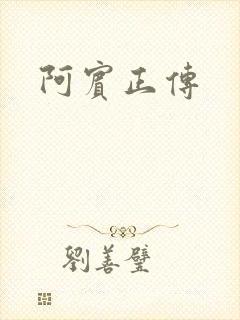 阿賓正傳
劉善璧